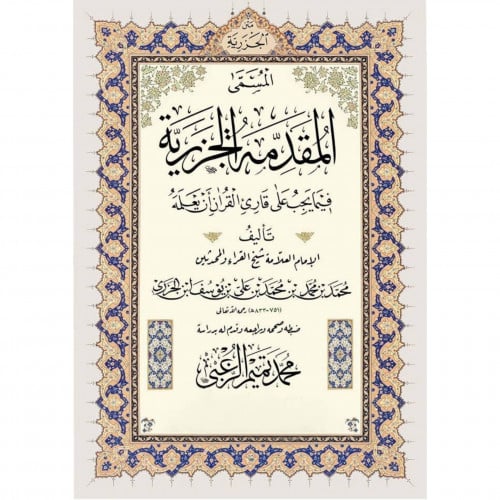 متن
الجزرية
المسمى
المقدمة الجزرية
فيما يجب على قارئ القرآن أن يعلمه
تأليف
الإمام العلامة شيخ القراء والمحدثين
محمد بن محمد بن محمد بن علي بن يوسف ابن الجزري
(٧٥١-٨٣٣هـ) رحمه الله تعالى
ضبطه وصححه وراجعه وقدم له بدراسة
محمد تميم الزعبي